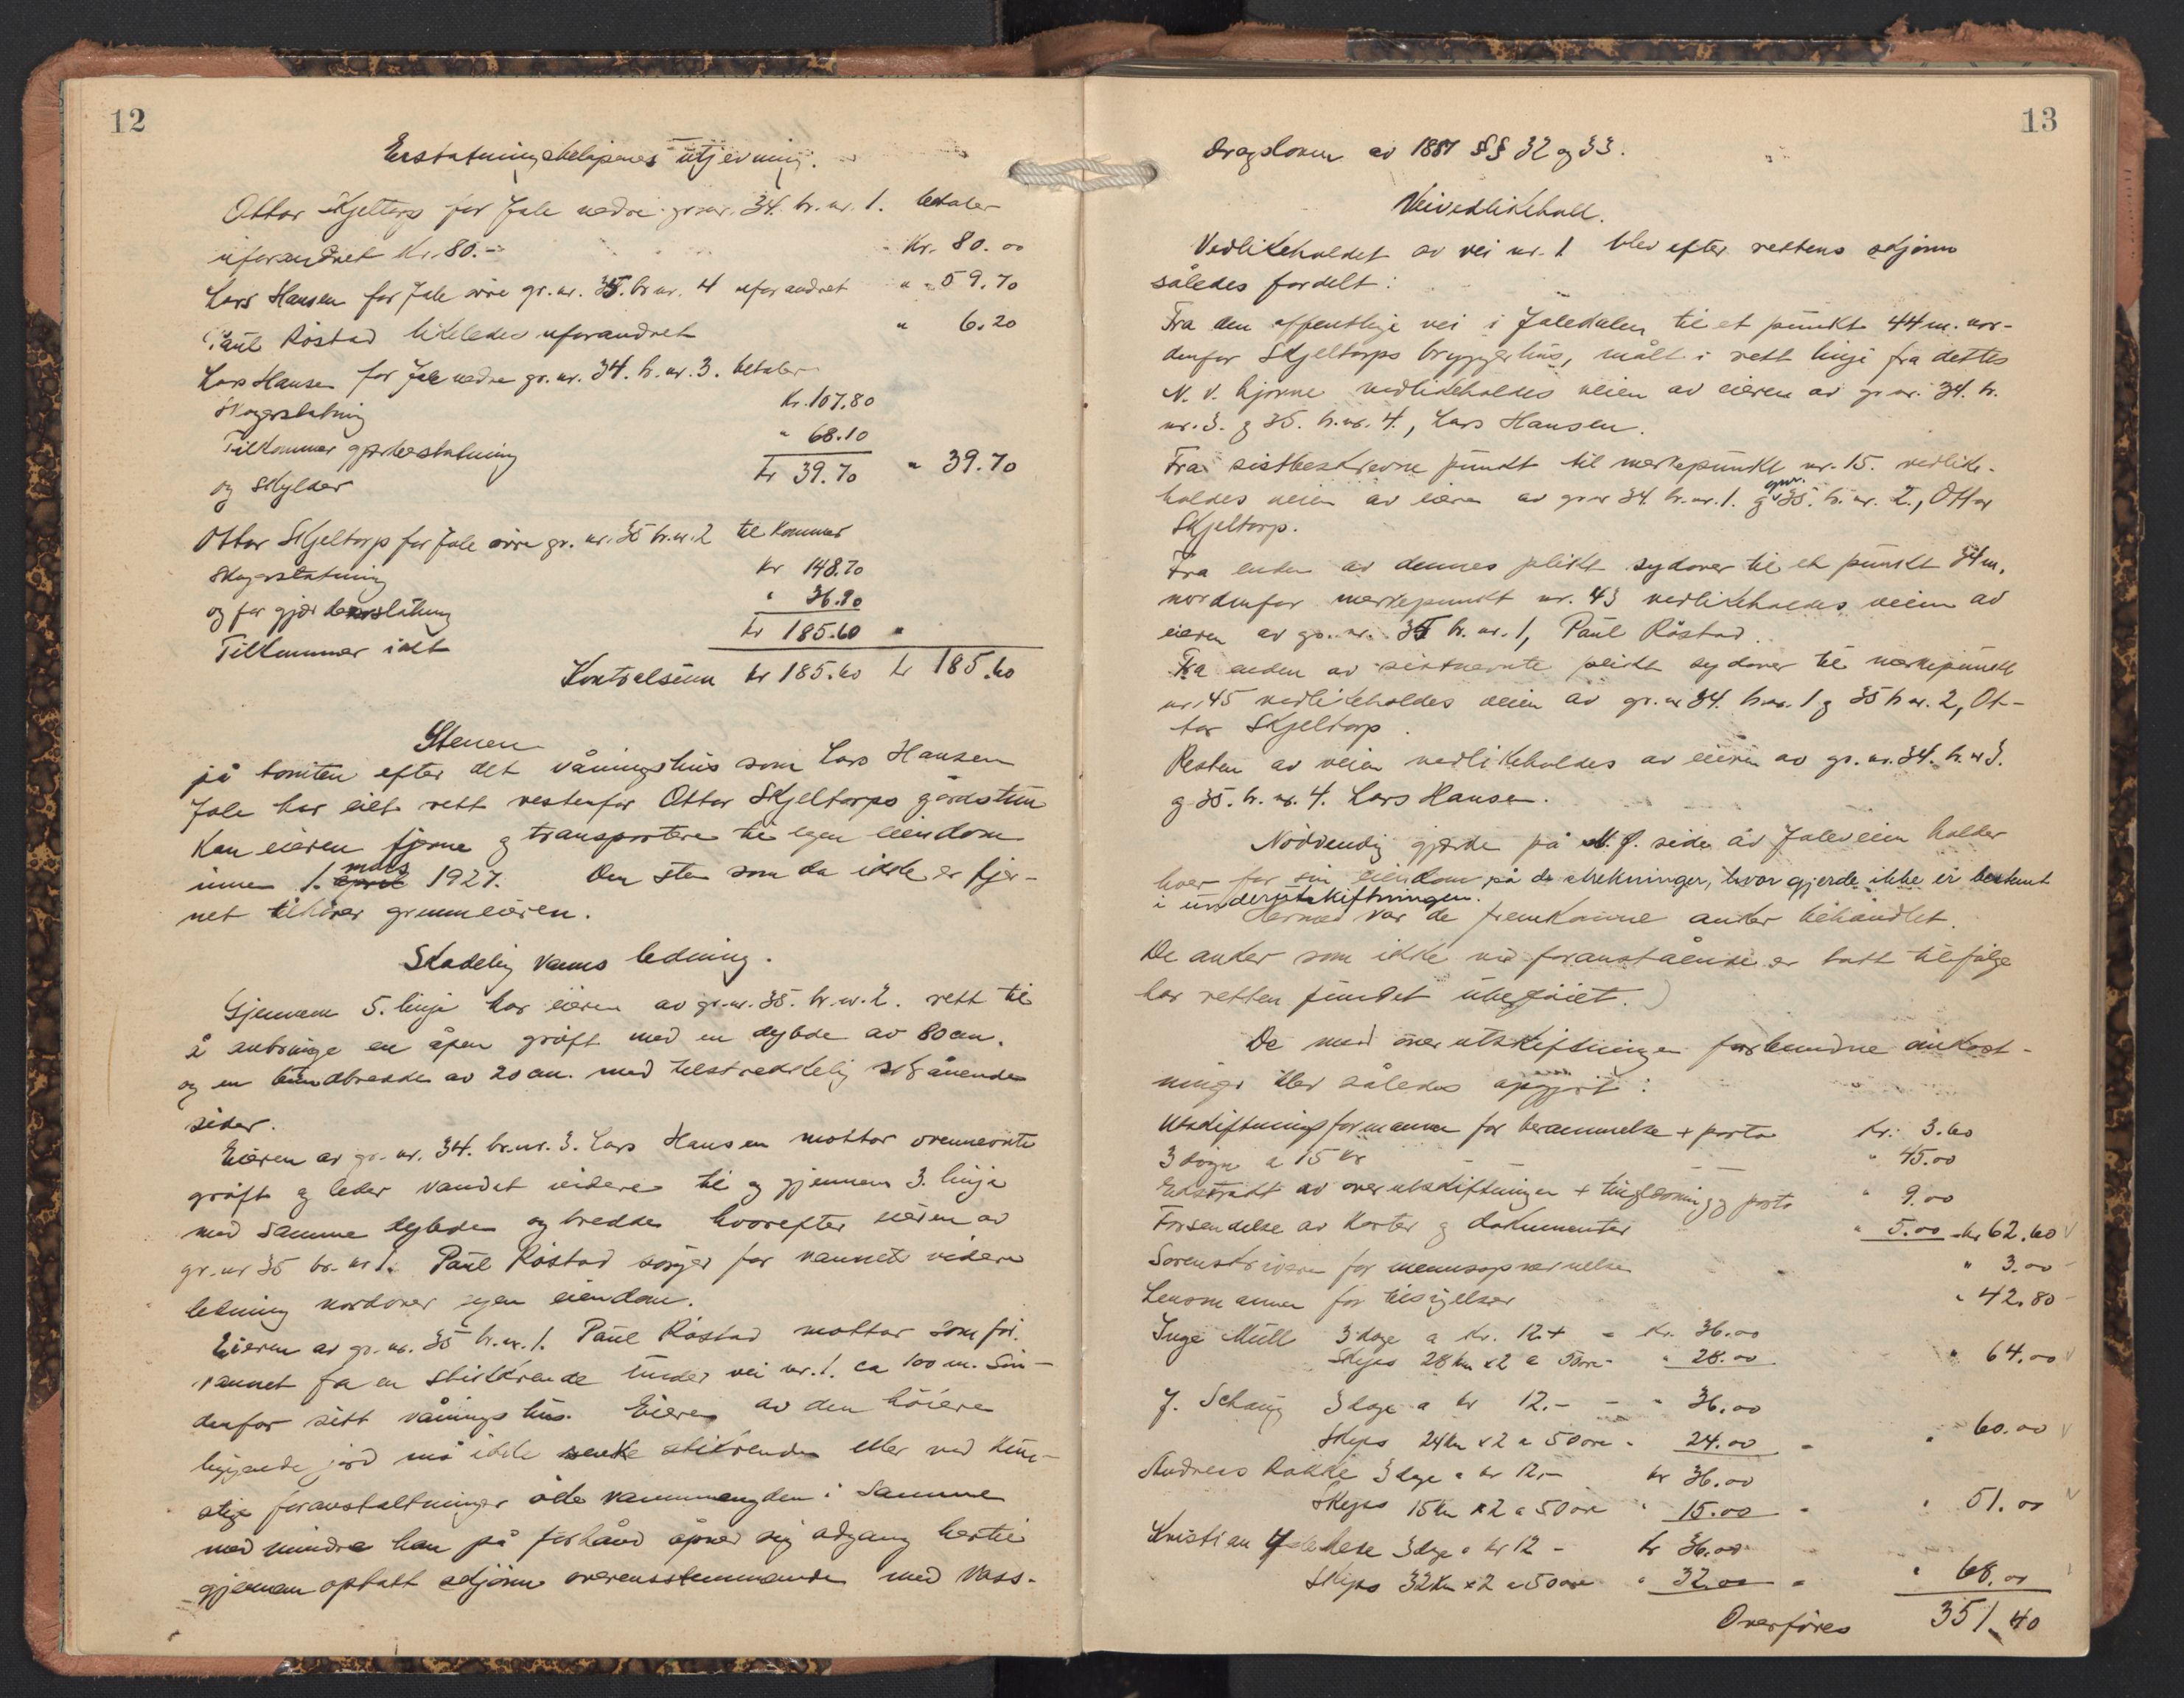 12
Erstatningsbelöpenes utjevning.
Ottar Skjeltorp for Jale nedre gr.nr. 34. br.nr. 1. betaler
uforandret kr. 80.- Kr. 80.00
Lars Hansen for Jale övre gr.nr. 35. br.nr. 4 uforandret " 59.70
Paul Röstad likeledes uforandret " 6.20
Lars Hansen for Jale nedre gr.nr. 34. br.nr. 3. betaler
Skogerstatning Kr. 107.80
Tilkommer gjerdeerstatning " 68.10
og skylder kr 39.70 " 39.70
Ottar Skjeltorp for Jale övre gr.nr. 35 br.nr. 2 tilkommer
Skogerstatning kr 148.70
og for gjerdeerstatning " 36.90
Tilkommer ialt kr 185.60 "
Kontrolsum kr 185.60 kr 185.60
Stenen
på tomten efter det våningshus som Lars Hansen
Jale har eiet rett vestenfor Ottar Skjeltorps gårdstun
kan eieren fjerne og transportere til egen eiendom
innen 1. april mars 1927. Den sten som da ikke er fjer-
net tilhörer grunneieren.
Skadelig vanns ledning.
Gjennem 5. linje har eieren av gr.nr. 35. br.nr. 2. rett til
å anbringe en åpen gröft med en dybde av 80 cm.
og en bundbredde av 20 cm. med tilstrekkelig skrånende
sider.
Eieren av gr.nr. 34. br.nr. 3. Lars Hansen mottar ovennevnte
gröft og leder vandet videre til og gjennem 3. linje
med samme dybde og bredde hvorefter eieren av
gr.nr 35 br.nr 1. Paul Röstad sörger for vannets videre
ledning nordover egen eiendom.
Eieren av gr.nr. 35 br.nr. 1. Paul Röstad mottar som för
vannet fra en stikkrende under vei nr. 1. ca 100 m. sön-
denfor sitt våningshus. Eieren av den höiere
liggende jord må ikke senke stikrenden eller ved kun-
stige foranstaltninger öke vannmengden i samme
med mindre han på forhånd åpner sig adgang hertil
gjennem optatt skjönn overensstemmende med Vass-
13
dragsloven av 1887 §§ 32 og 33.
Veivedlikehold.
Vedlikeholdet av vei nr. 1 blev efter rettens skjönn
således fordelt:
Fra den offentlige vei i Jaledalen til et punkt 44 m. nor-
denfor Skjeltorps bryggerhus, målt i rett linje fra dettes
N. V. hjörne vedlikeholdes veien av eieren av gr.nr. 34. br.
nr. 3. og 35. br.nr. 4., Lars Hansen.
Fra sistbeskrevne punkt til merkepunkt nr. 15. vedlike-
holdes veien av eieren av gr.nr 34. br.nr. 1. og gnr. 35. br.nr. 2., Ottar
Skjeltorp.
Fra enden av dennes plikt sydover til et punkt 84 m.
nordenfor merkepunkt nr. 43 vedlikeholdes veien av
eieren av gr.nr. 35 br.nr. 1, Paul Röstad.
Fra enden av sistnevnte plikt sydover til merkepunkt
nr. 45 vedlikeholdes veien av gr.nr 34. br.nr. 1 og 35 br.nr. 2, Ot-
tar Skjeltorp.
Resten av veien vedlikeholdes av eieren av gr.nr. 34. br.nr 3.
og 35. br.nr. 4. Lars Hansen.
Nödvendig gjerde på N. Ö. side av Jaleveien holder
hver for sin eiendom på de strekninger, hvor gjerde ikke er bestemt
i underutskiftningen.
Hermed var de fremkomne anker behandlet.
De anker som ikke ved foranstående er tatt tilfölge
har retten fundet ubeföiet.
De med overutskiftningen forbundne omkost-
ninger blev således opgjort:
Utskiftningsformannen for berammelse + porto Kr. 3.60
3 dager a 15 kr " 45.00
Ekstrakt av overutskiftningen + tinglesning og porto " 9.00
Forsendelse av karter og dokumenter " 5.00 - kr 62.60
Sorenskriveren for mennsopnevnelse " 3.00
Lensmannen for tilsigelser " 42.80
Inge Müll 3 dage a kr. 12.+ - Kr. 36.00
Skyss 28 km x 2 a 50 öre - " 28.00 " 64.00
J. Schaug 3 dage a kr 12.- - " 36.00
Skyss 24 km x 2 a 50 öre - 24.00 - " 60.00
Andreas Rakke 3 dage a kr 12.- kr 36.00
Skyss 15 km x 2 a 50 öre " 15.00 - " 51.00
Kristian 3 dage a kr 12 - kr 36.00
Skyss 32 km x 2 a 50 öre " 32.00 - " 68.00
Overföres 351.40